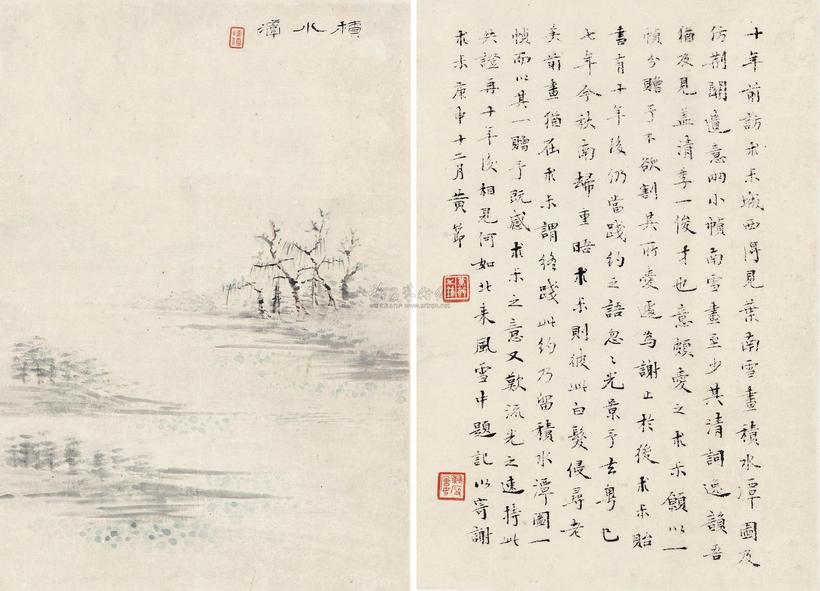 積水潭
十年前訪求未城西得見葉南雪畫積水潭圖及
仿荊關遺意兩小幀南雪畫至少其清詞逸韻吾
猶及見蓋清季一俊才也意頗愛之求未願以一
幀分贈予不欲割其所愛遽為謝止於後求未貽
書有十年後仍當踐約之語忽〻光景予去粵已
七年今秋南歸重晤求未則彼此白髮侵尋老
矣前畫猶在求未謂終踐此約乃留積水潭圖一
幀而以其一贈予既感求未之意又歎流光之速持此
共證再十年後相見何如北來風雪中題記以寄謝
求未庚申十二月黃節